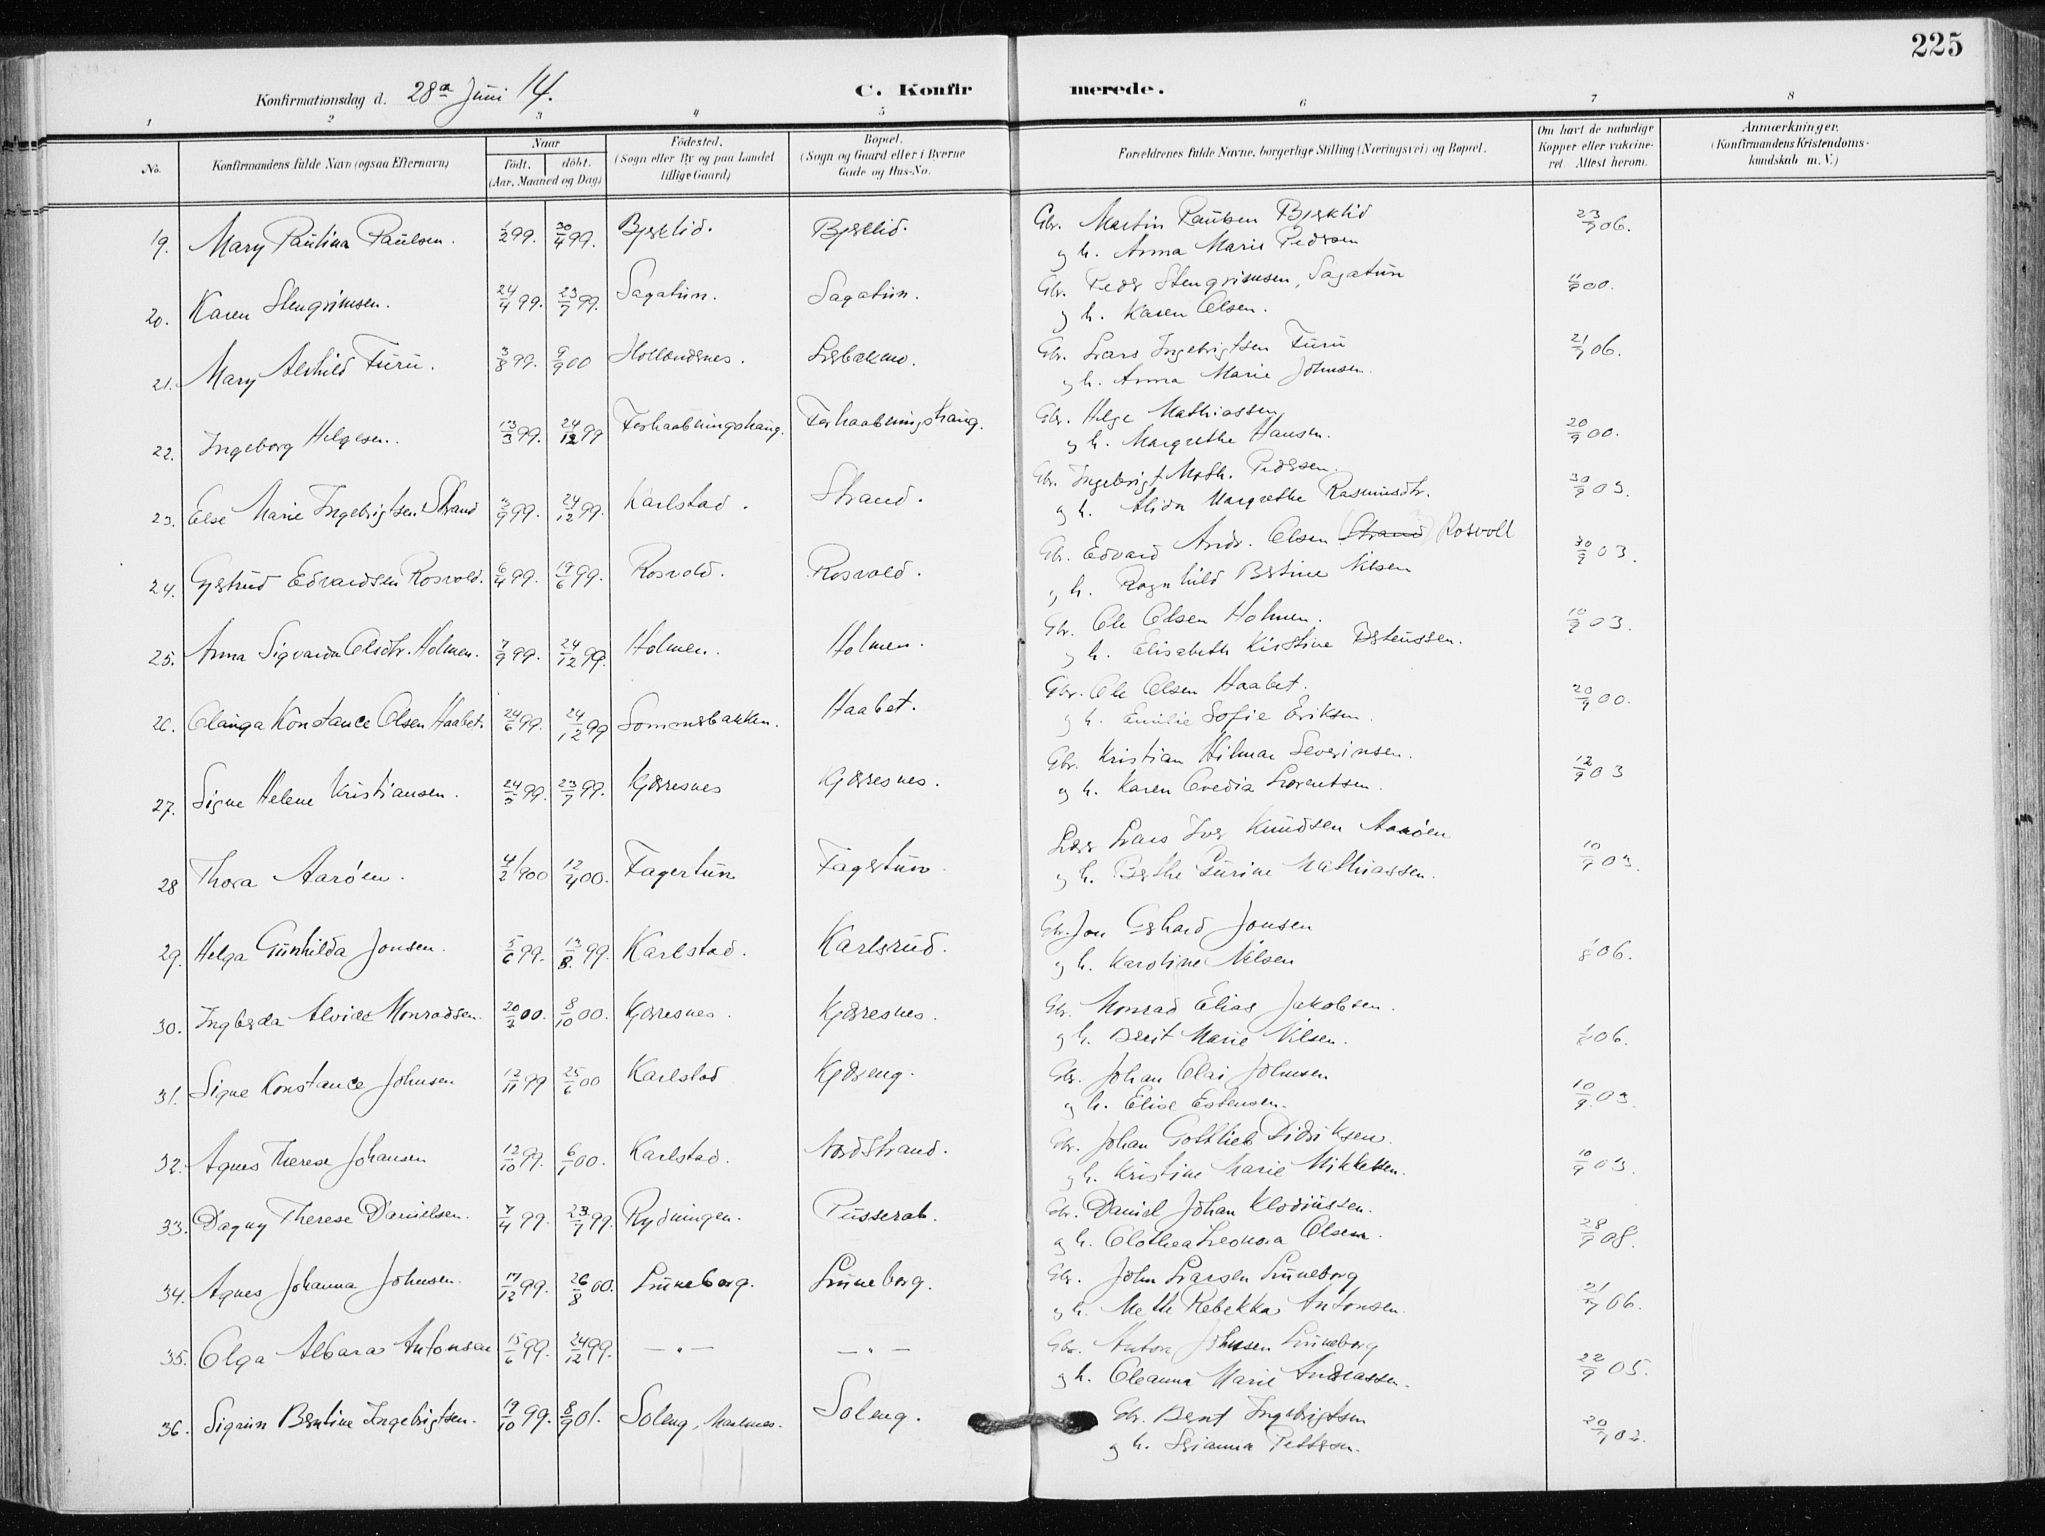 225
Konfirmationsdag d. 28de Juni 14. C. Konfirmerede.
1 2 3 4 5 6 7 8
No. Konfirmandens fulde Navn (ogsaa Efternavn) Naar födt, döbt. (Aar, Maaned og Dag) Födested. (Sogn eller By og paa Landet tillige Gaard) Bopæl. (Sogn og Gaard eller i Byerne Gade og Hus-No. Forældrenes fulde Navne, borgerlige Stilling (Næringsvei) og Bopæl. Om havt de naturlige Kopper eller vakcineret. Attest herom. Anmærkninger. (Konfirmandens Kristendomskundskab m. V.)
19. Mary Paulina Paulsen. 1/2 99. 30/4 99. Bjerklid. Bjerklid. Gbr. Martin Paulsen Bjerklid 23/7 06.
og h. Anna Marie Pedersen
20. Karen Stengrimsen. 24/4 99. 23/7 99. Sagatun. Sagatun. Gbr. Peder Stengrimsen, Sagatun 11/9 00.
og h. Karen Olsen.
21. Mary Alvhild Furu. 3/8 99. 9/9 00 Hollendernes. Lerbakmo. Gbr. Lars Ingebrigtsen Furu 21/7 06.
og h. Anna Marie Johnsen.
22. Ingeborg Helgesen. 13/3 99. 24/12 99 Forhaabningshaug. Forhaabningshaug. Gbr. Helge Mathiassen 20/9 00.
og h. Margrethe Hansen.
23. Else Marie Ingebrigtsen Strand 3/9 99. 24/12 99. Karlstad. Strand. Gbr. Ingebrigt Math. Pedersen. 30/9 03.
og h. Alida Margrethe Rasmusdtr.
24. Gjertrud Edvardsen Rosvold. 6/4 99. 19/6 99. Rosvold. Rosvold. Gbr. Edvard Andr. Olsen (Strand) Rosvoll 30/9 03.
og h. Ragnhild Bertine Nilsen
25. Anna Sigvarda Olsdtr. Holmen. 7/9 99. 24/12 99. Holmen. Holmen. Gbr. Ole Olsen Holmen. 10/9 03.
og h. Elisabeth Kirstine Estenssen.
26. Olaûga Konstance Olsen Haabet. 24/6 99. 24/12 99 Sommerbakken. Haabet. Gbr. Ole Olsen Haabet. 20/9 00.
og h. Emilie Sofie Eriksen.
27. Signe Helene Kristiansen. 24/5 99. 23/7 99. Kjerresnes Kjerresnes. Gbr. Kristian Hilmar Severinsen. 12/9 03
og h. Karen Ovedia Lorentsen.
28 Thora Aarøen. 4/2 1900 12/4 00. Fagertun Fagertun. Lærer Lars Iver Knudsen Aarøen 10/9 03.
og h. Berthe Gurine Mathiassen.
29. Helga Gunhilda Jonsen. 5/6 99. 13/8. 99. Karlstad. Karlsrud. Gbr. Jon Gerhard Jonsen 1/8 06.
og h. Karoline Nilsen
30. Ingberda Alvide Monradsen. 20/2 00. 8/10 00. Kjerresnes. Kjerresnes. Gbr. Monrad Elias Jakobsen. 1/8 06.
og h. Berit Marie Nilsen.
31. Signe Konstance Johnsen 12/11 99 25/6 00 Karlstad Kjereng. Gbr. Johan Olai Johnsen 10/9. 03.
og h. Elise Estensen.
32. Agnes Therese Johansen 12/10 99. 6/1 00. Karlstad. Nordstrand. Gbr. Johan Gottlieb Didriksen. 10/9 03.
og h. Kristine Marie Mikkelsen.
33. Dagny Therese Danielsen. 7/4 99. 23/7 99. Rydningen. Pusserab. Gbr. Daniel Johan Klodiussen. 28/9 08.
og h. Olothea Leonora Olsen.
34. Agnes Johanna Johnsen. 17/12 99. 26/8 00. Luneborg. Luneborg. Gbr. John Larsen Luneborg 21/7 06.
og h. Meth Rebekka Antonsen.
35. Olga Albara Antonsen 15/6 99. 24/12 99. — " — — " — Gbr. Anton Johnsen Luneborg 22/9 05.
og h. Oleanna Marie Andreassen.
36. Sigrun Berntine Ingebrigtsen. 19/10 99. 8/9 01. Soleng, Malnes. Soleng. Gbr. Bernt Ingebrigtsen 20/9 02.
og h. Serianna Pettersen.